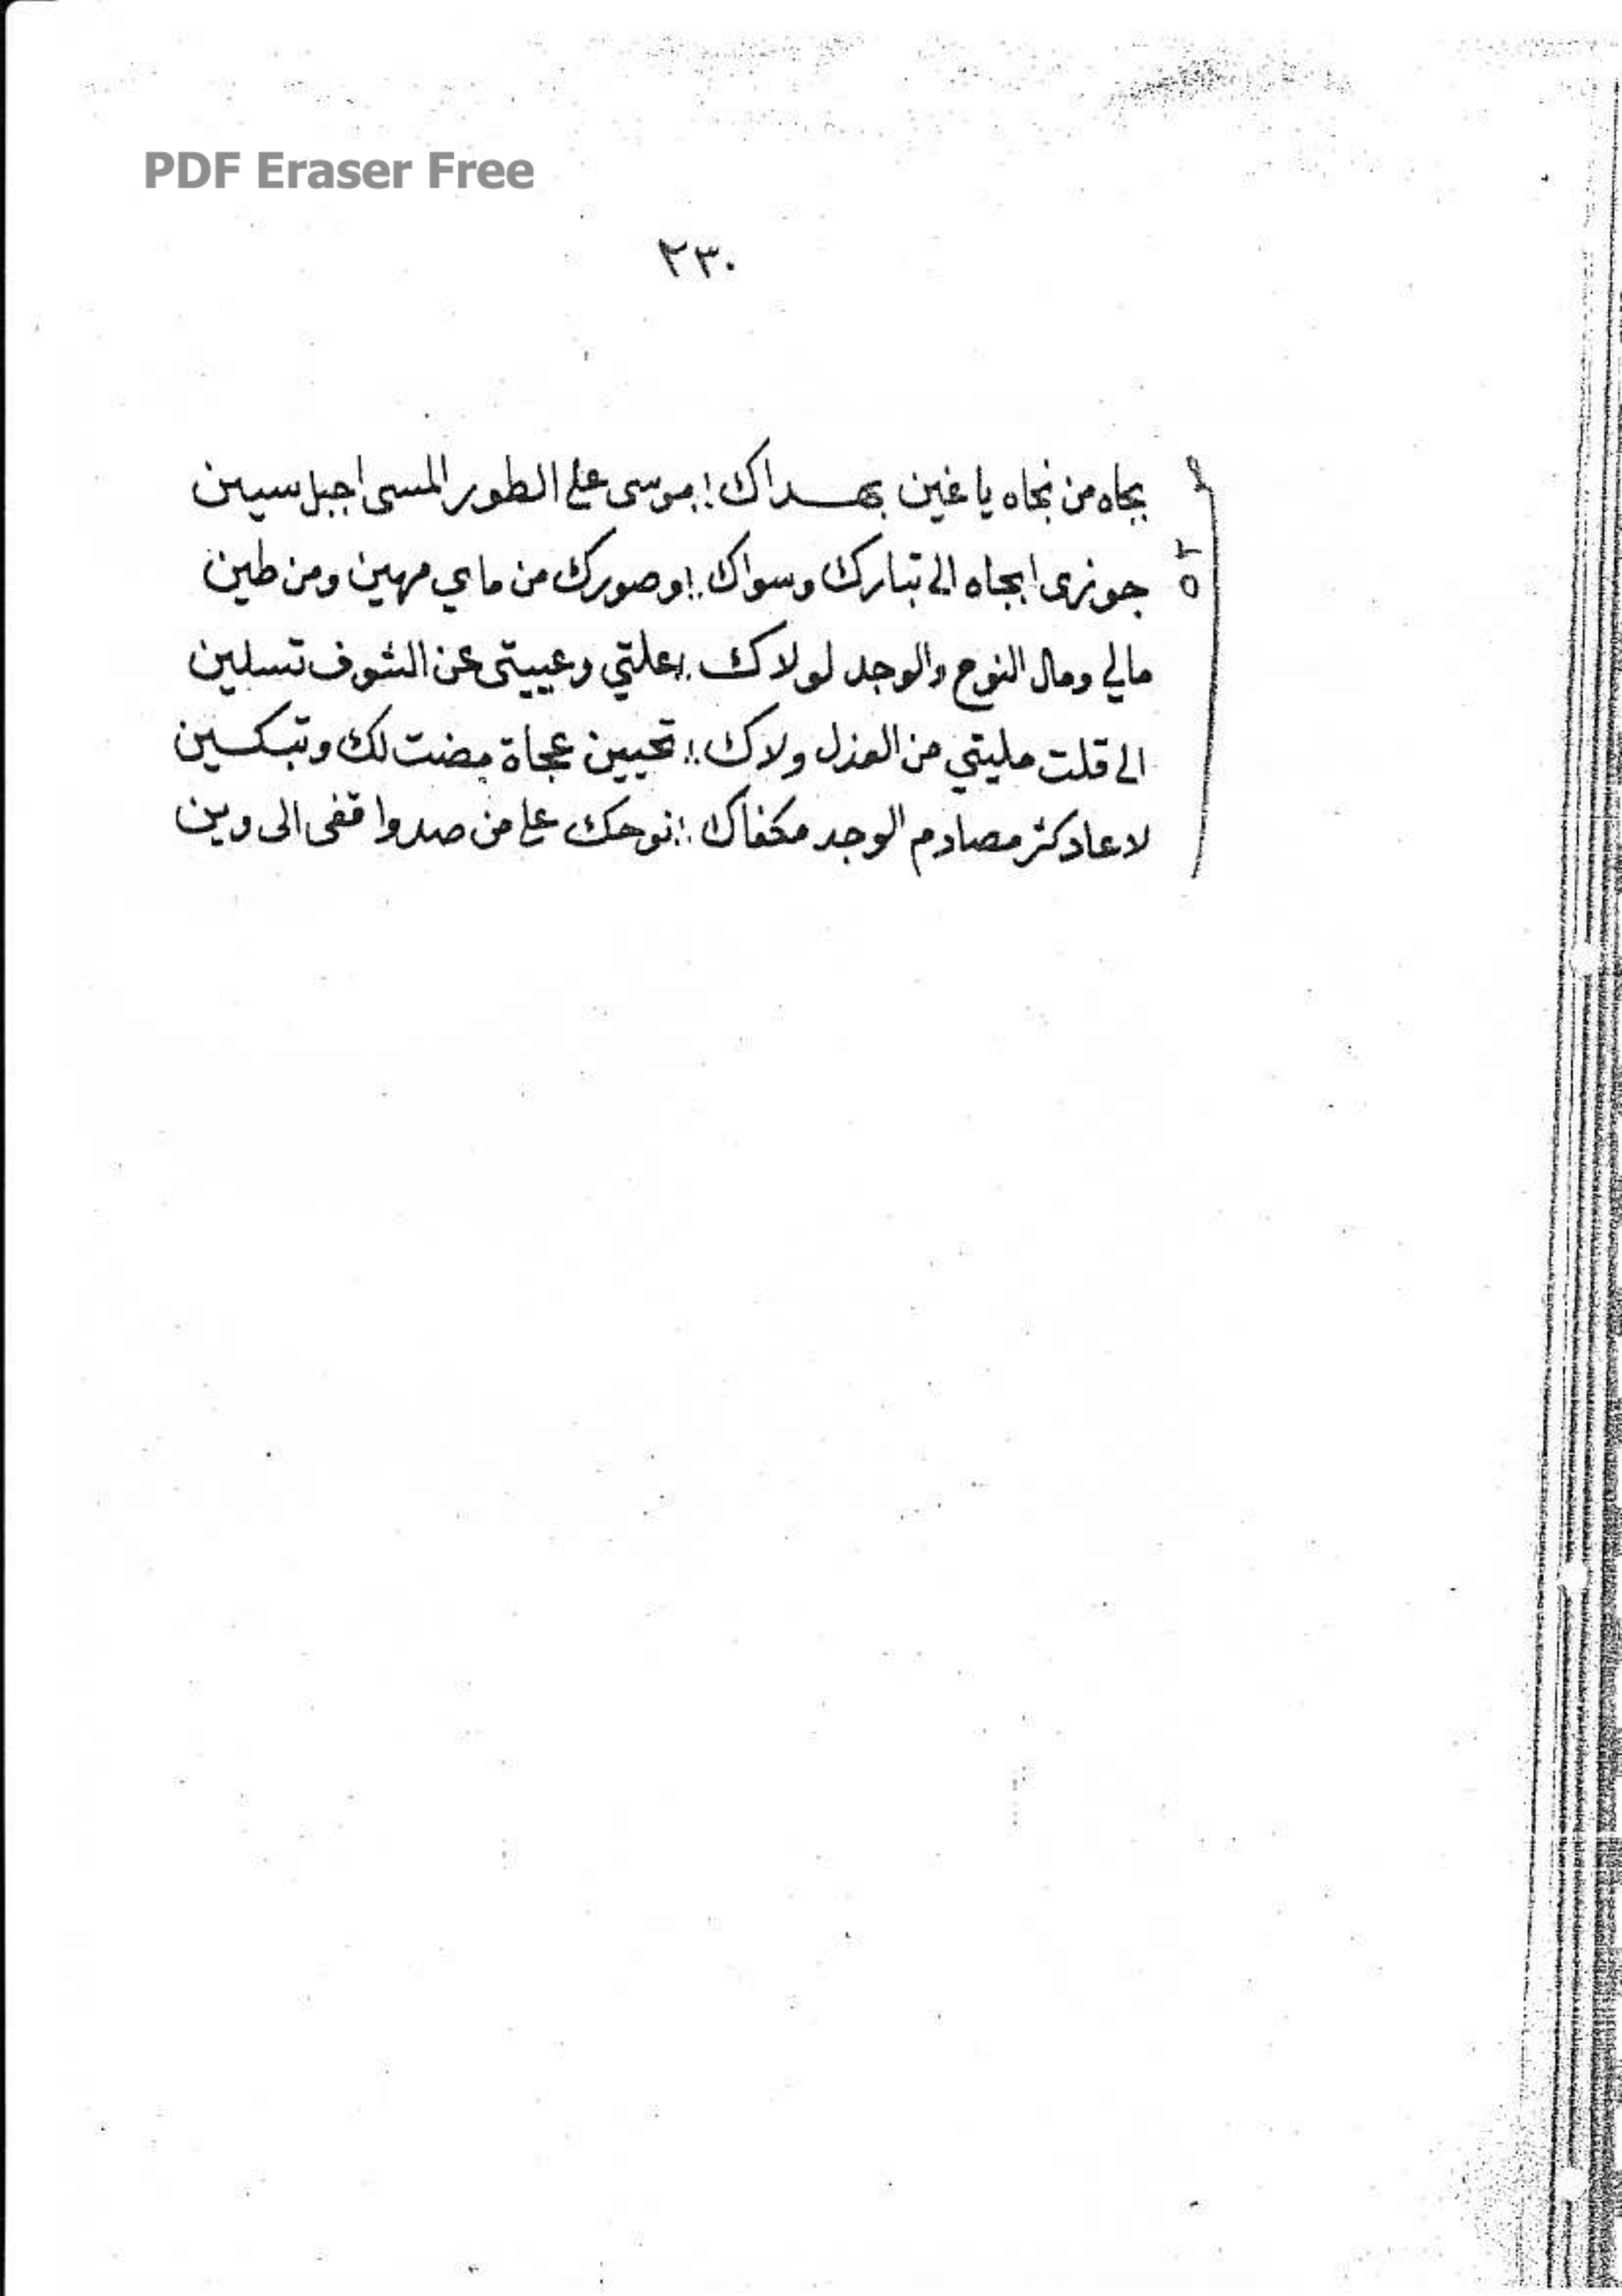 PDF Eraser Free
٢٣٠
بجاه من نجاه يا غين بهداك !! بموسى على الطور المسى اجبل سيين
جوزى ابجاه الى تبارك وسواك !! وصورك من ماي مهين ومن طين
مالي ومال النوح والوجد لولاك !! علتي وعييتى عن الشوف تسلين
الى قلت مليتي من العذل ولاك !! تحيين عجاة مضت لك وتبكسين
لا عاد كثر مصادم الوجد مكفاك !! نوحك على من صدوا قفى الى وين